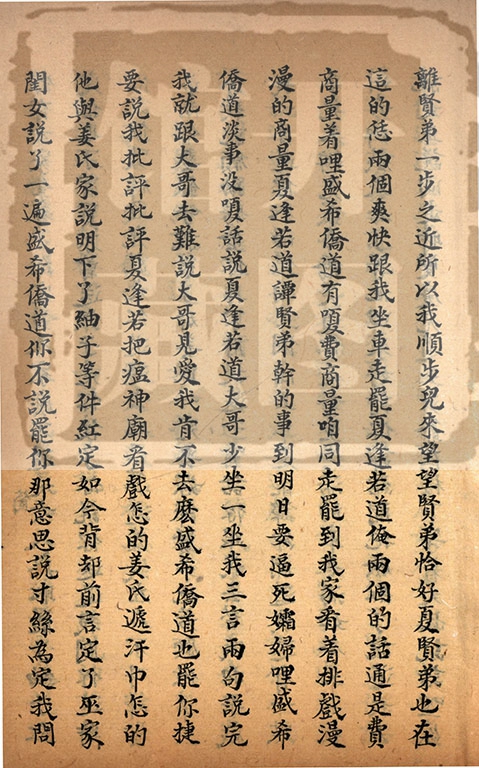 離賢弟一步之近所以我順步現來望望賢弟恰好夏賢弟也在
這的恁兩個爽快跟我坐車走罷夏逢若道俺兩個的話通是費
商量着哩盛希僑道有嗄費商量咱同走罷到我家看着排戲漫
漫的商量夏逢若道譚賢弟幹的事到明日要逼死孀婦哩盛希
僑道淡事没嗄話說夏逢若道大哥少坐一坐我三言兩句説完
我就跟大哥去難説大哥見愛我肯不去麽盛希僑道也罷你捷
要説我批評批評夏逢若把瘟神廟看戲怎的姜氏遞汗巾怎的
他與姜氏家説明下了紬子等件紅定如今背却前言定了巫家
閨女説了一遍盛希僑道你不説罷你那意思説寸絲為定我問